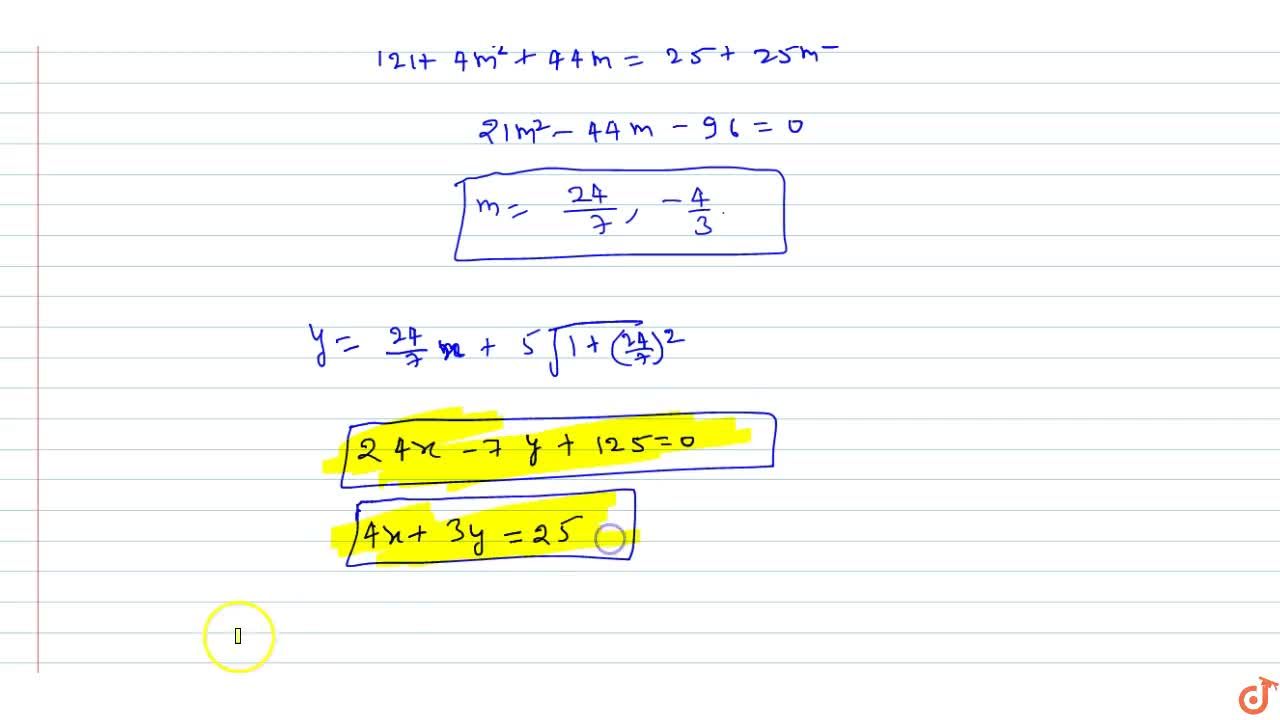 121 + 4m² + 44m = 25 + 25m²
21m² - 44m - 96 = 0
m = 24/7, -4/3.
y = 24/7 x + 5√1 + (24/7)²
24x - 7y + 125 = 0
4x + 3y = 25